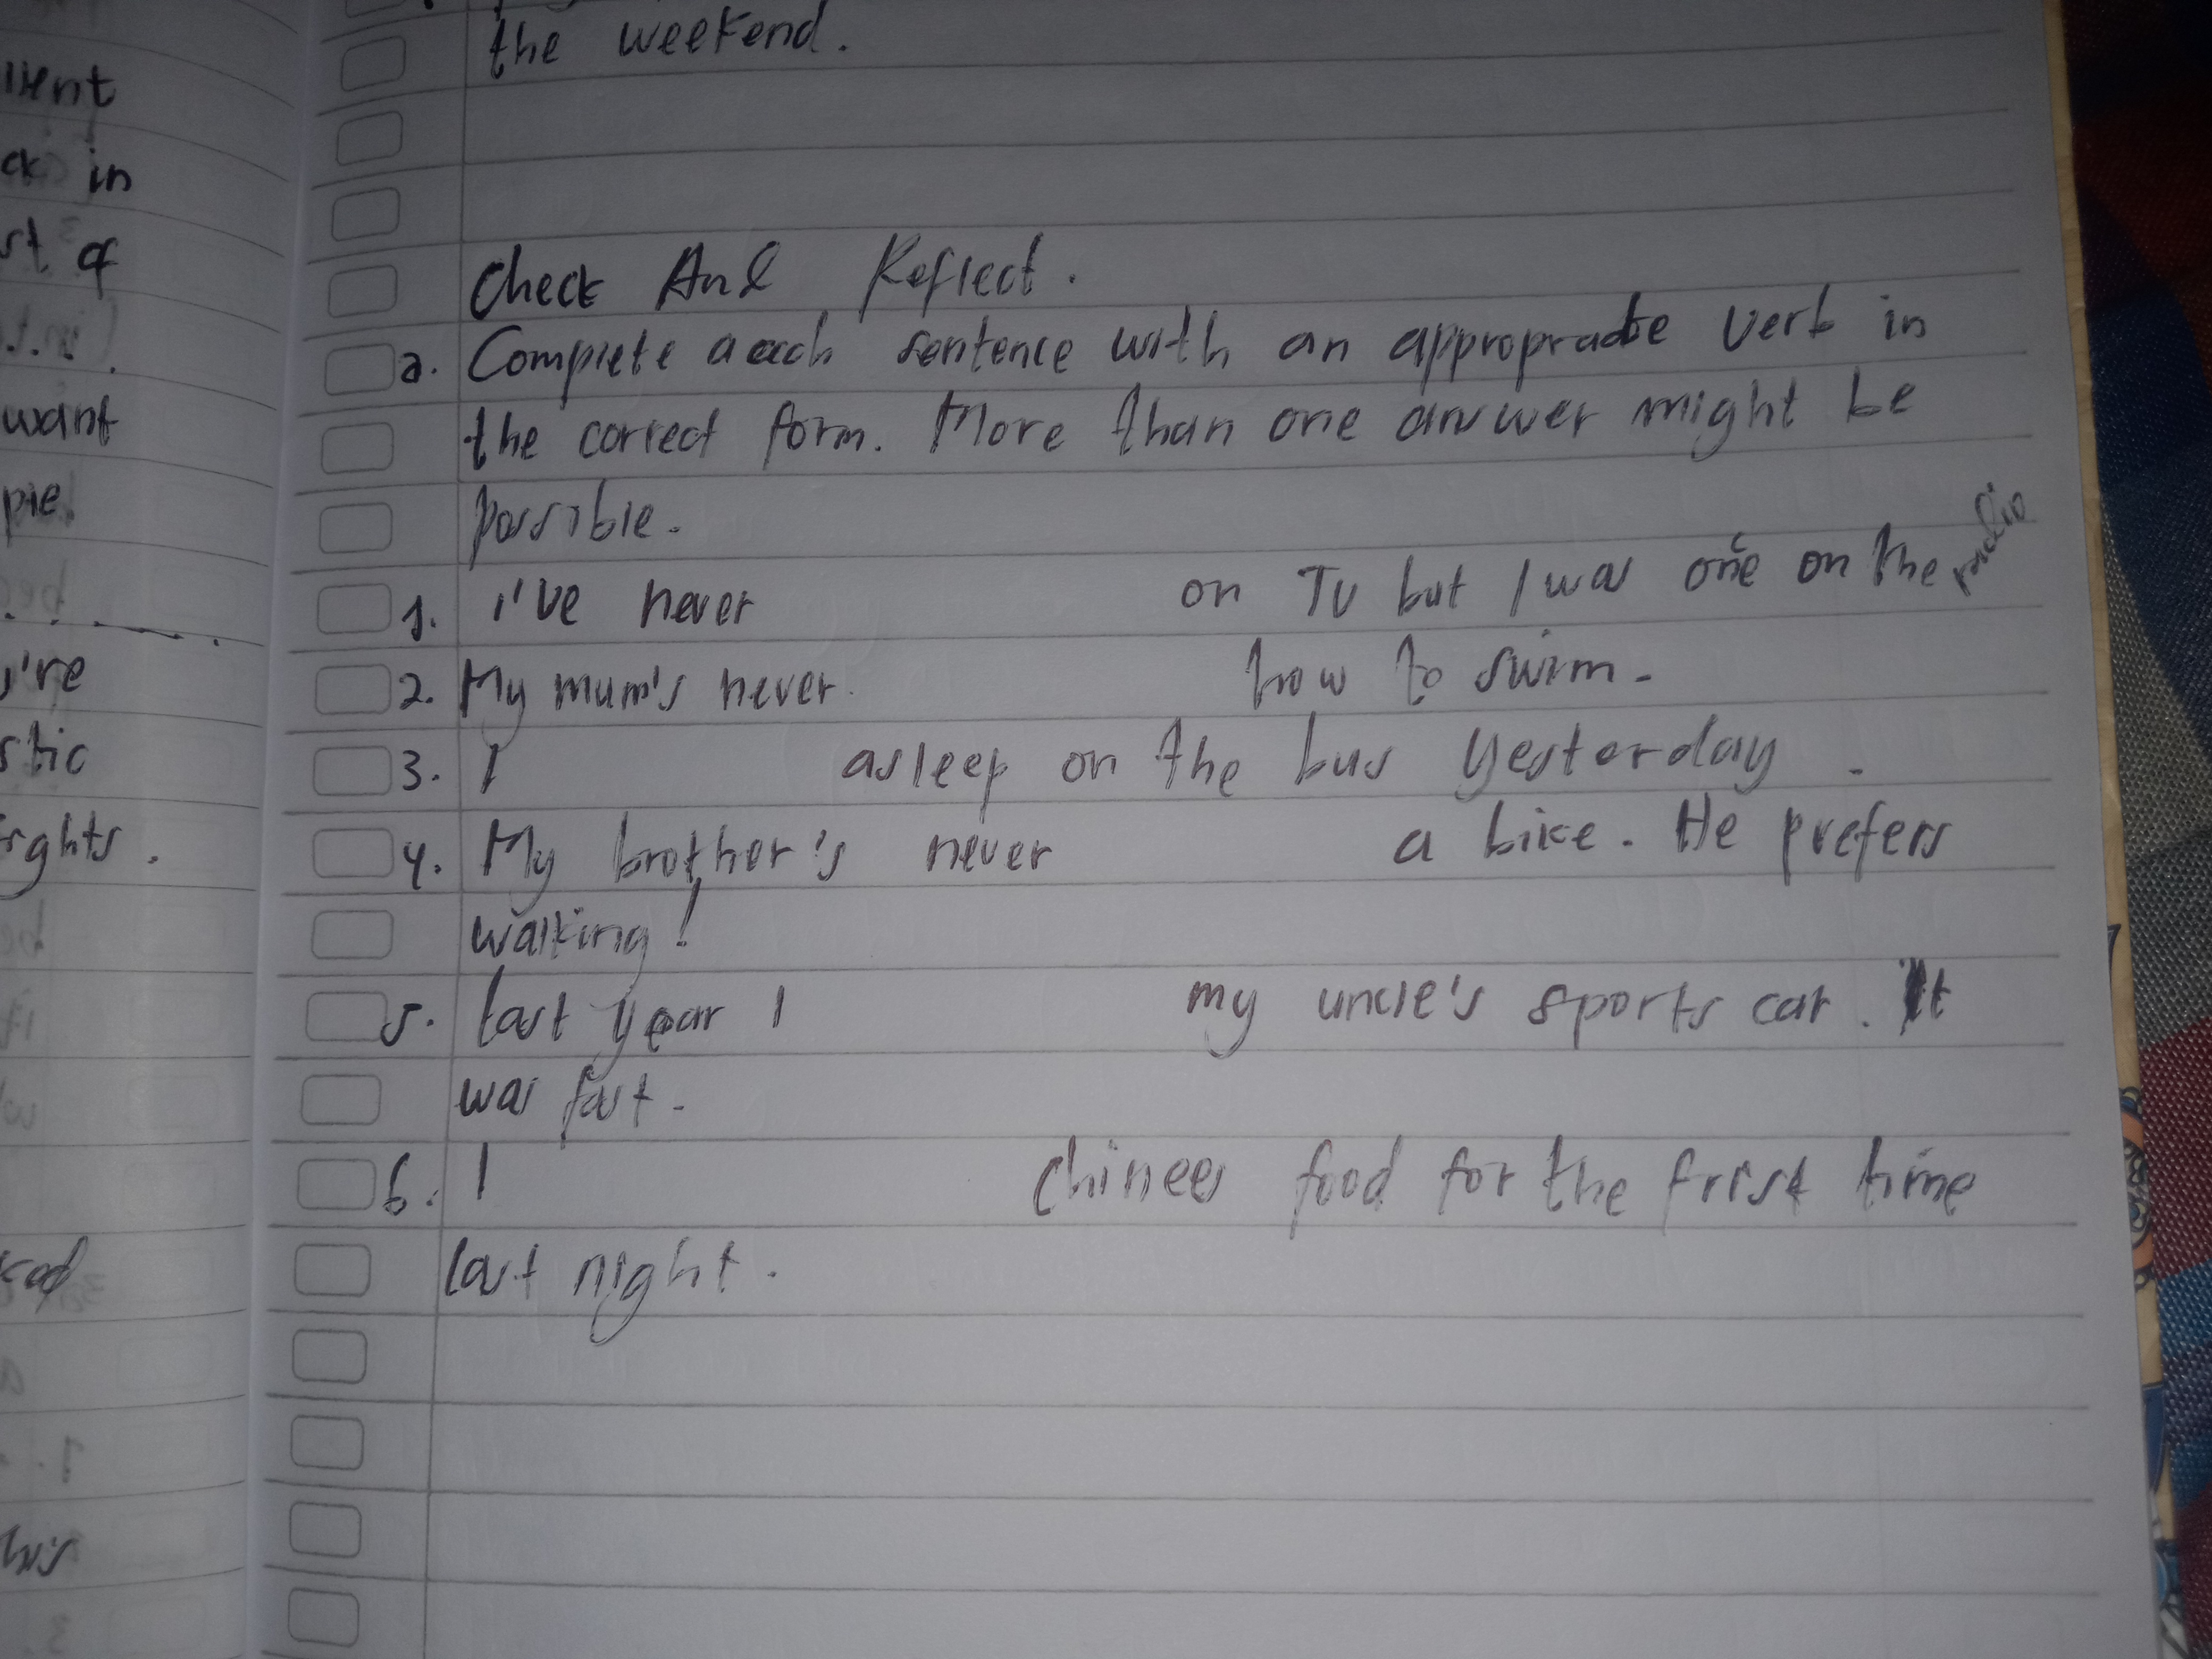 the weekend.
Check And Reflect.
a. Complete aeach sentence with an approprate verb in
the correct form. More than one answer might be
possible.
1. i've never on TV but I was once on the radio
2. My mum's never how to swim.
3. I asleep on the bus yesterday.
4. My brother's never a bike. He prefers
walking!
5. last year I my uncle's sports car. It
was fast.
6. I Chinees food for the frist time
last night.
ck in
st of
want
ple
're
stic
ights.